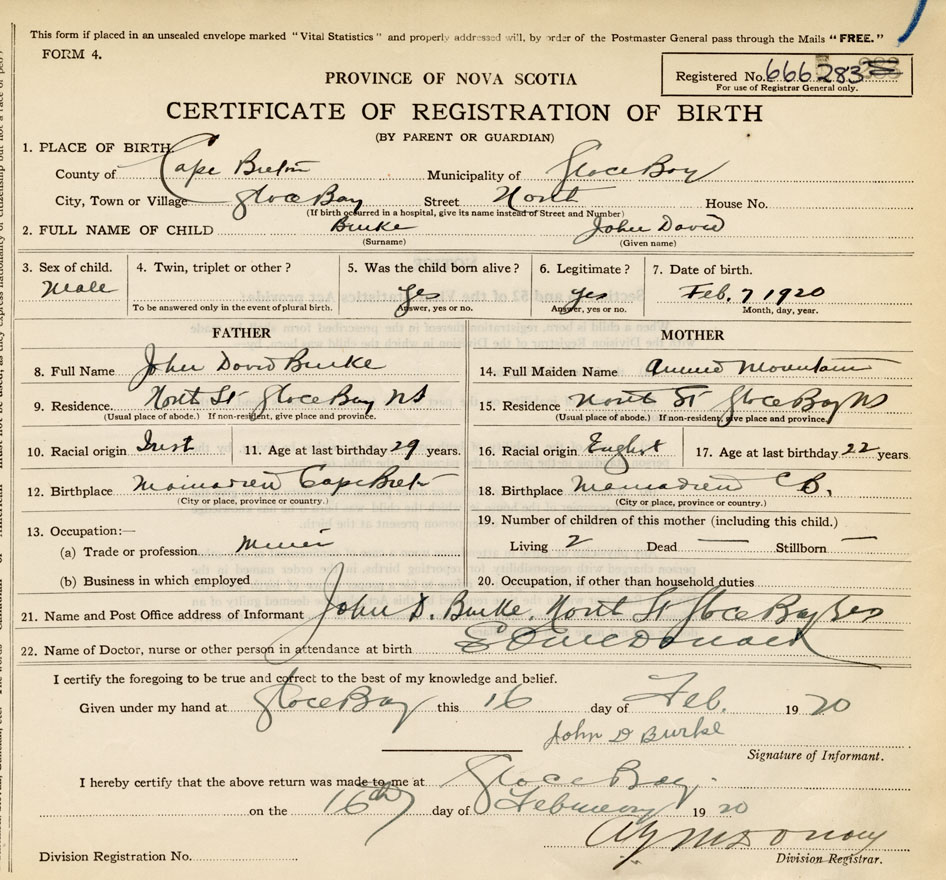 This form if placed in an unsealed envelope marked "Vital Statistics" and properly addressed will, by order of the Postmaster General pass through the Mails "FREE."
FORM 4.
Registered No. 666283
For use of Registrar General only.
PROVINCE OF NOVA SCOTIA
CERTIFICATE OF REGISTRATION OF BIRTH
(BY PARENT OR GUARDIAN)
1. PLACE OF BIRTH
County of Cape Breton Municipality of Glace Bay
City, Town or Village Glace Bay Street North House No.
(If birth occurred in a hospital, give its name instead of Street and Number)
2. FULL NAME OF CHILD Burke John David
(Surname) (Given name)
3. Sex of child. 4. Twin, triplet or other? 5. Was the child born alive? 6. Legitimate? 7. Date of birth.
Male Yes Yes Feb. 7 1920
To be answered only in the event of plural birth. Answer, yes or no. Answer, yes or no. Month, day, year.
FATHER MOTHER
8. Full Name John David Burke 14. Full Maiden Name Annie Mountain
9. Residence. North St Glace Bay NS 15. Residence North St Glace Bay NS
(Usual place of abode.) If non-resident, give place and province. (Usual place of abode.) If non-resident, give place and province.
10. Racial origin Irish 11. Age at last birthday 29 years. 16. Racial origin English 17. Age at last birthday 22 years
12. Birthplace Cape Breton 18. Birthplace C B.
(City or place, province or country.) (City or place, province or country.)
13. Occupation:— 19. Number of children of this mother (including this child.)
(a) Trade or profession Miner Living 2 Dead — Stillborn —
(b) Business in which employed 20. Occupation, if other than household duties
21. Name and Post Office address of Informant John D. Burke. North St Glace Bay
22. Name of Doctor, nurse or other person in attendance at birth McDonald
I certify the foregoing to be true and correct to the best of my knowledge and belief.
Given under my hand at Glace Bay this 16 day of Feb. 19 20
John D Burke
Signature of Informant.
I hereby certify that the above return was made to me at Glace Bay.
on the 16th day of February 19 20
Division Registration No. Division Registrar.